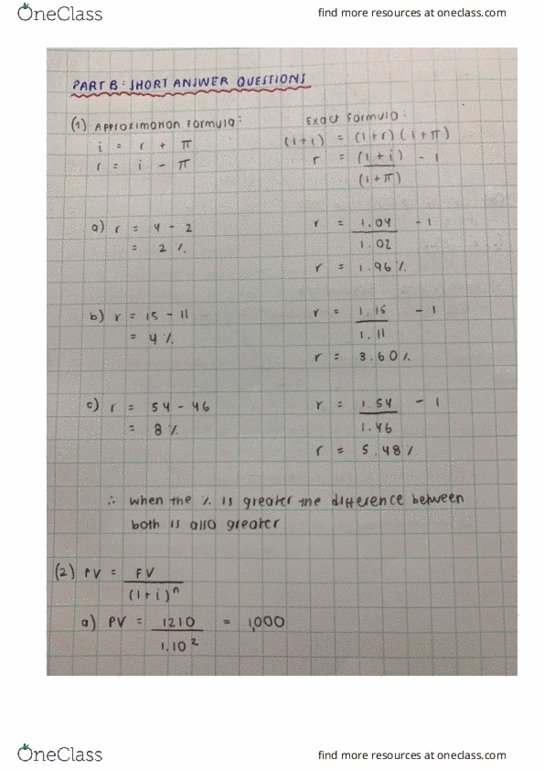 OneClass
find more resources at oneclass.com
PART B: SHORT ANSWER QUESTIONS
(1) Approximation Formula:
i = r + π
r = i - π
Exact Formula:
(1+i) = (1+r)(1+π)
r = (1+i) - 1
(1+π)
a) r = 4 - 2
= 2 %
r = 1.04 - 1
1.02
r = 1.96%
b) r = 15 - 11
= 4 %
r = 1.15 - 1
1.11
r = 3.60%
c) r = 54 - 46
= 8 %
r = 1.54 - 1
1.46
r = 5.48%
∴ when the % is greater the difference between
both is also greater
(2) PV = FV
(1+i)ⁿ
a) PV = 1210 = 1,000
1.10²
OneClass
find more resources at oneclass.com